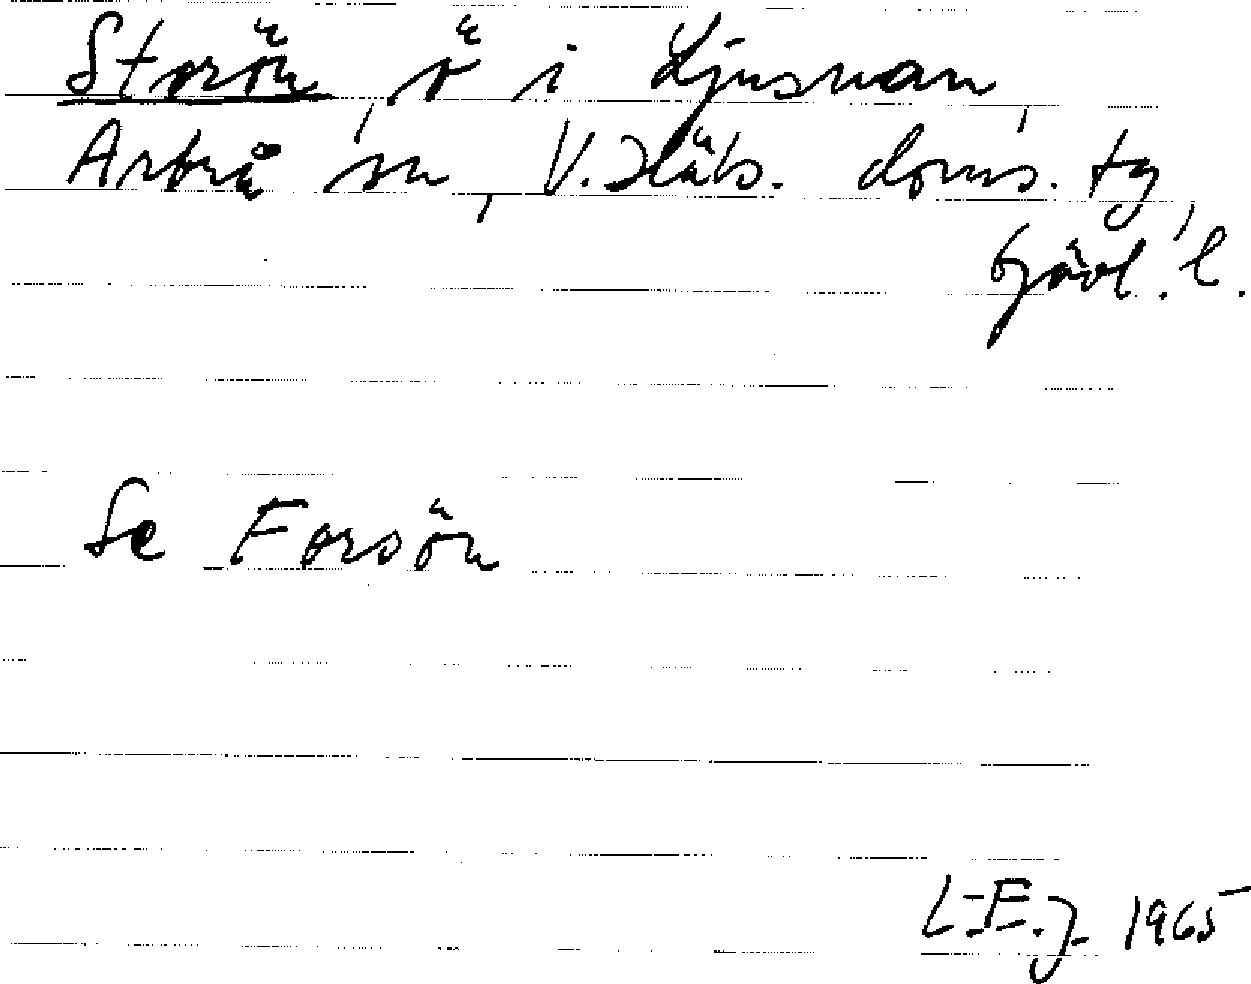 Storön, ö i Ljusnan,
Arbrå sn, V. Häls. doms. tg,
Gävl. l.
Se Forsön
L-E. J. 1965